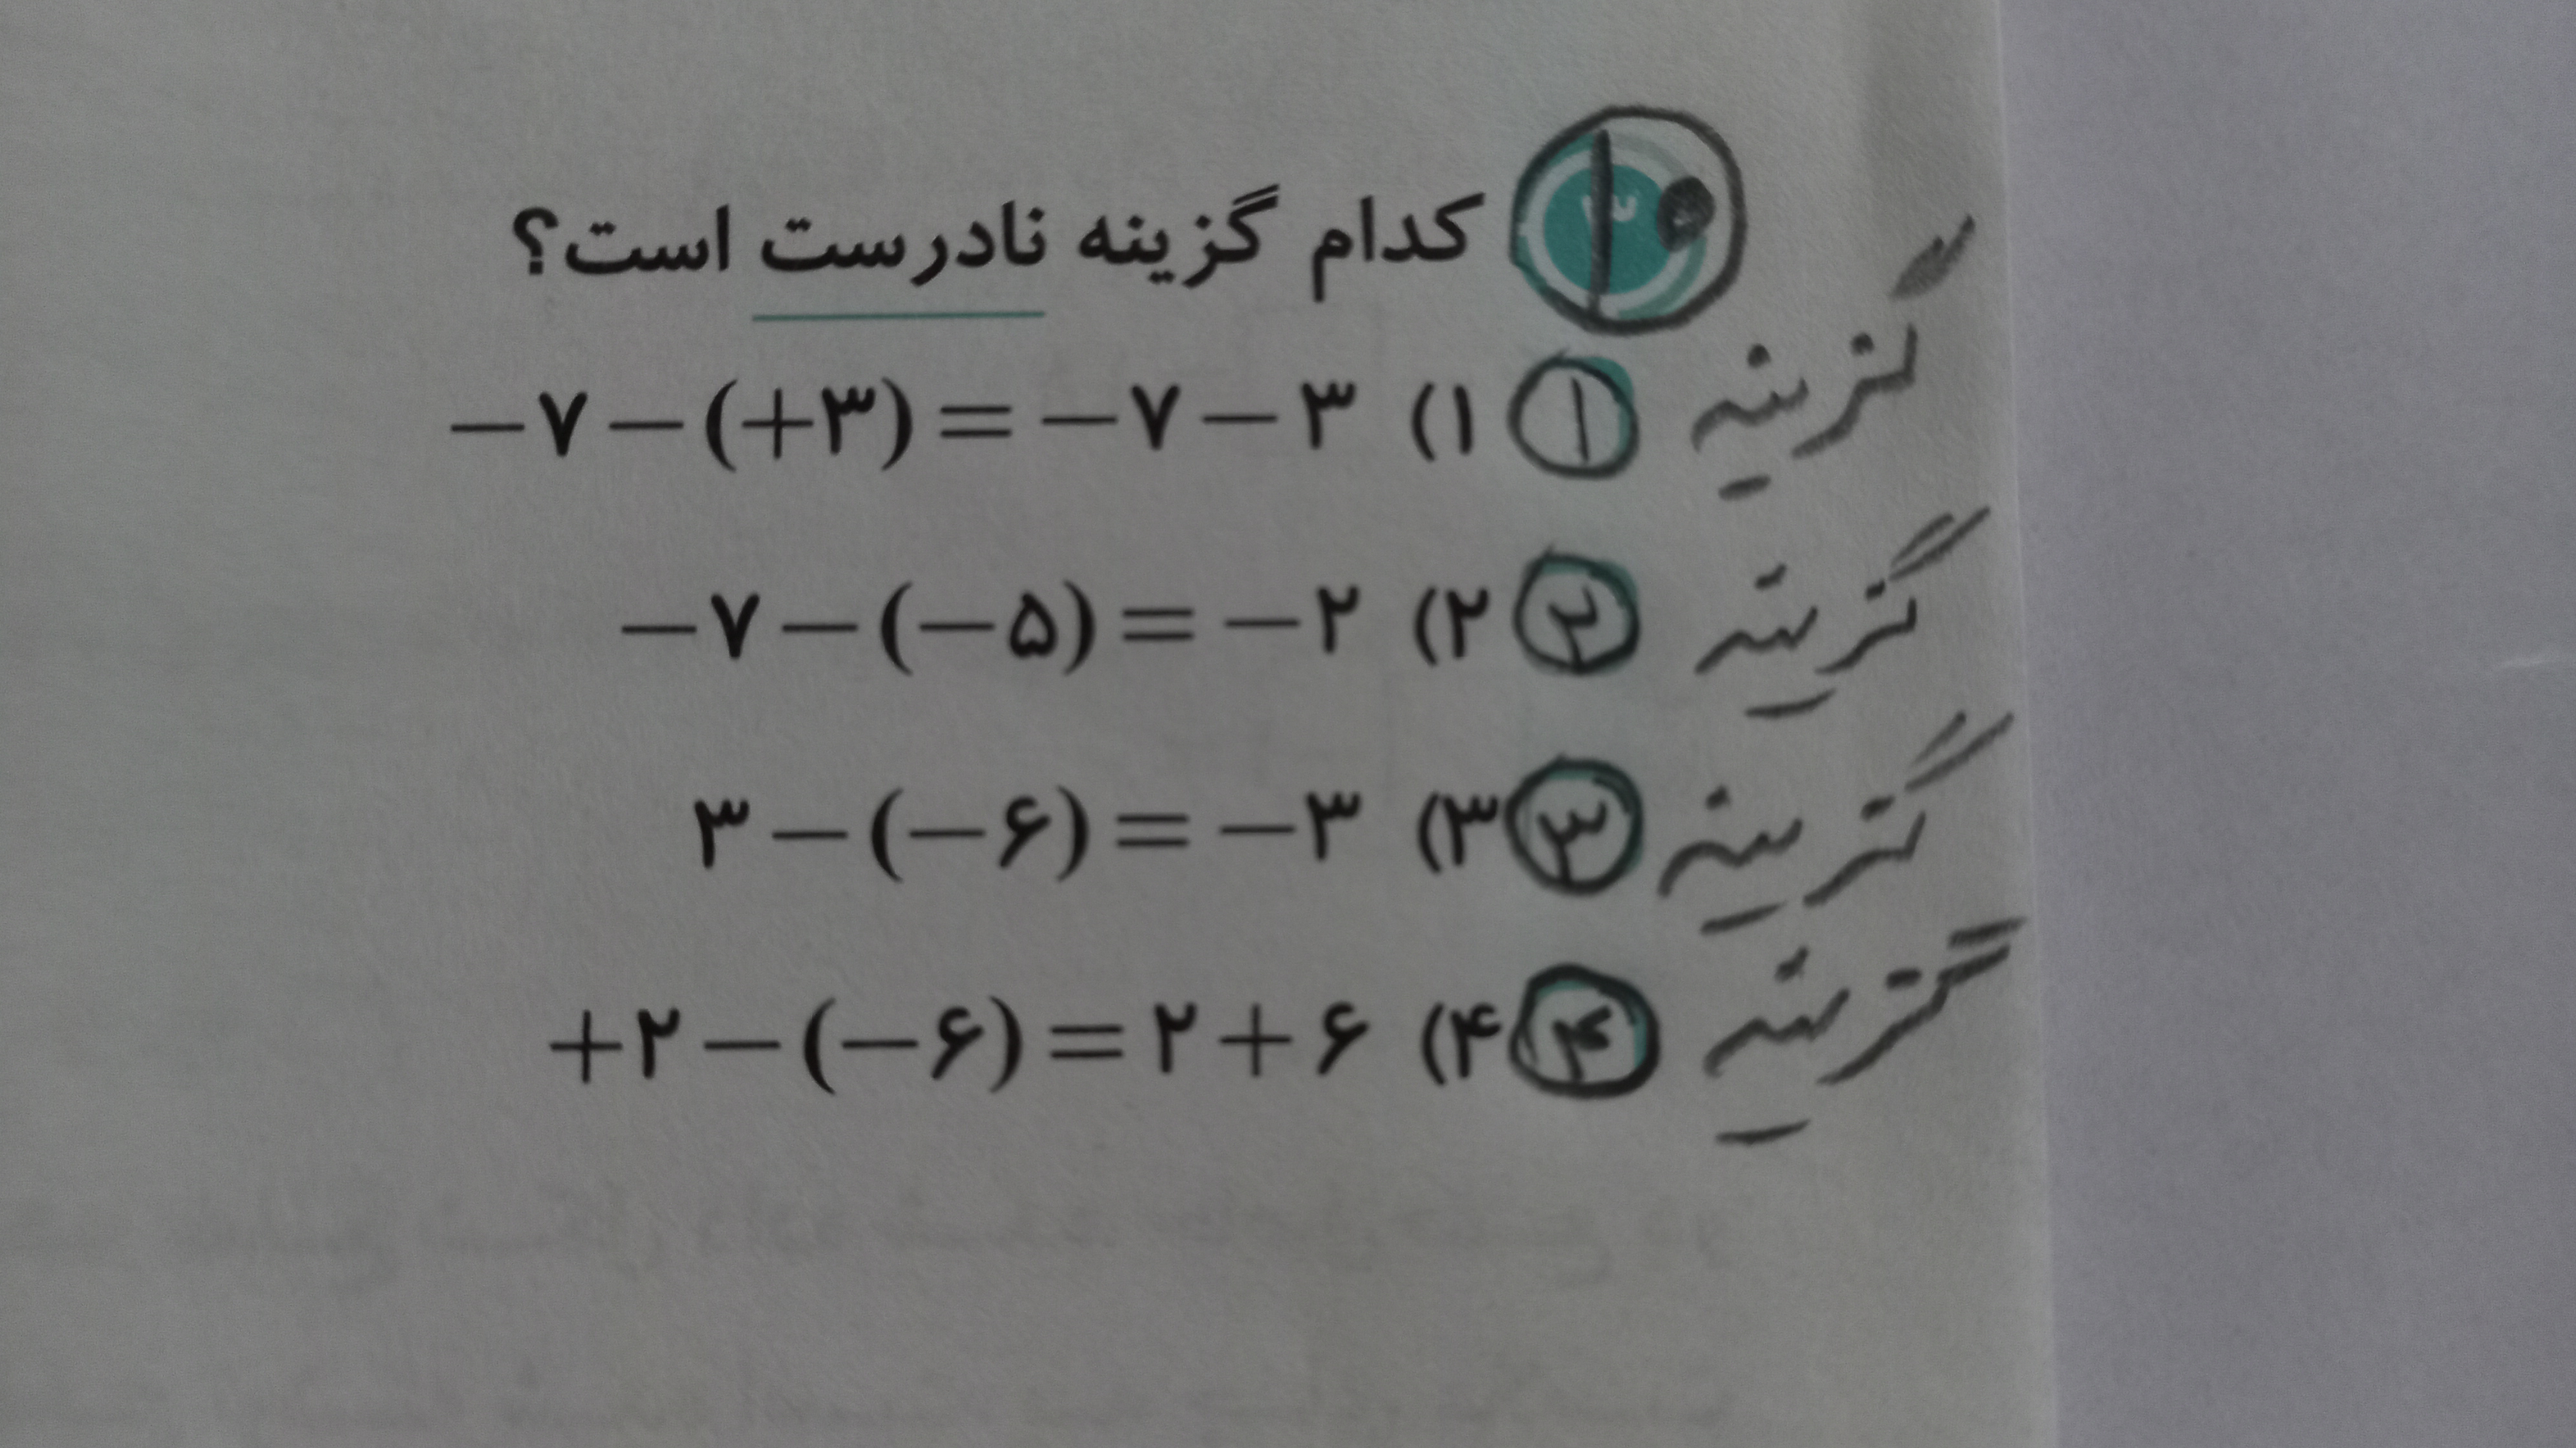 ۱۰ کدام گزینه نادرست است؟
گزینه ۱ ۱) −۷−(+۳)=−۷−۳
گزینه ۲ ۲) −۷−(−۵)=−۲
گزینه ۳ ۳) ۳−(−۶)=−۳
گزینه ۴ ۴) +۲−(−۶)=۲+۶